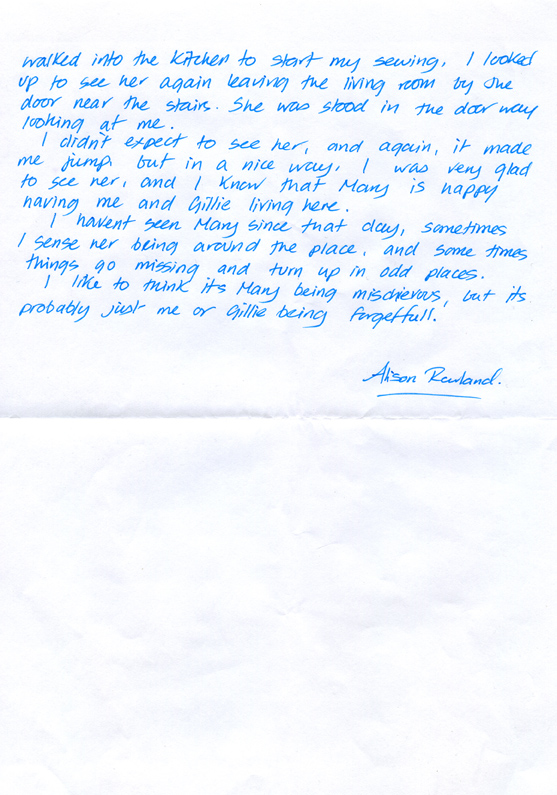 walked into the kitchen to start my sewing, I looked
up to see her again leaving the living room by the
door near the stairs. She was stood in the doorway
looking at me.
I didn't expect to see her, and again, it made
me jump, but in a nice way, I was very glad
to see her, and I know that Mary is happy
having me and Gillie living here.
I havent seen Mary since that day, sometimes
I sense her being around the place, and some times
things go missing and turn up in odd places.
I like to think its Mary being mischievous, but its
probably just me or Gillie being forgetfull!
Alison Rowland.